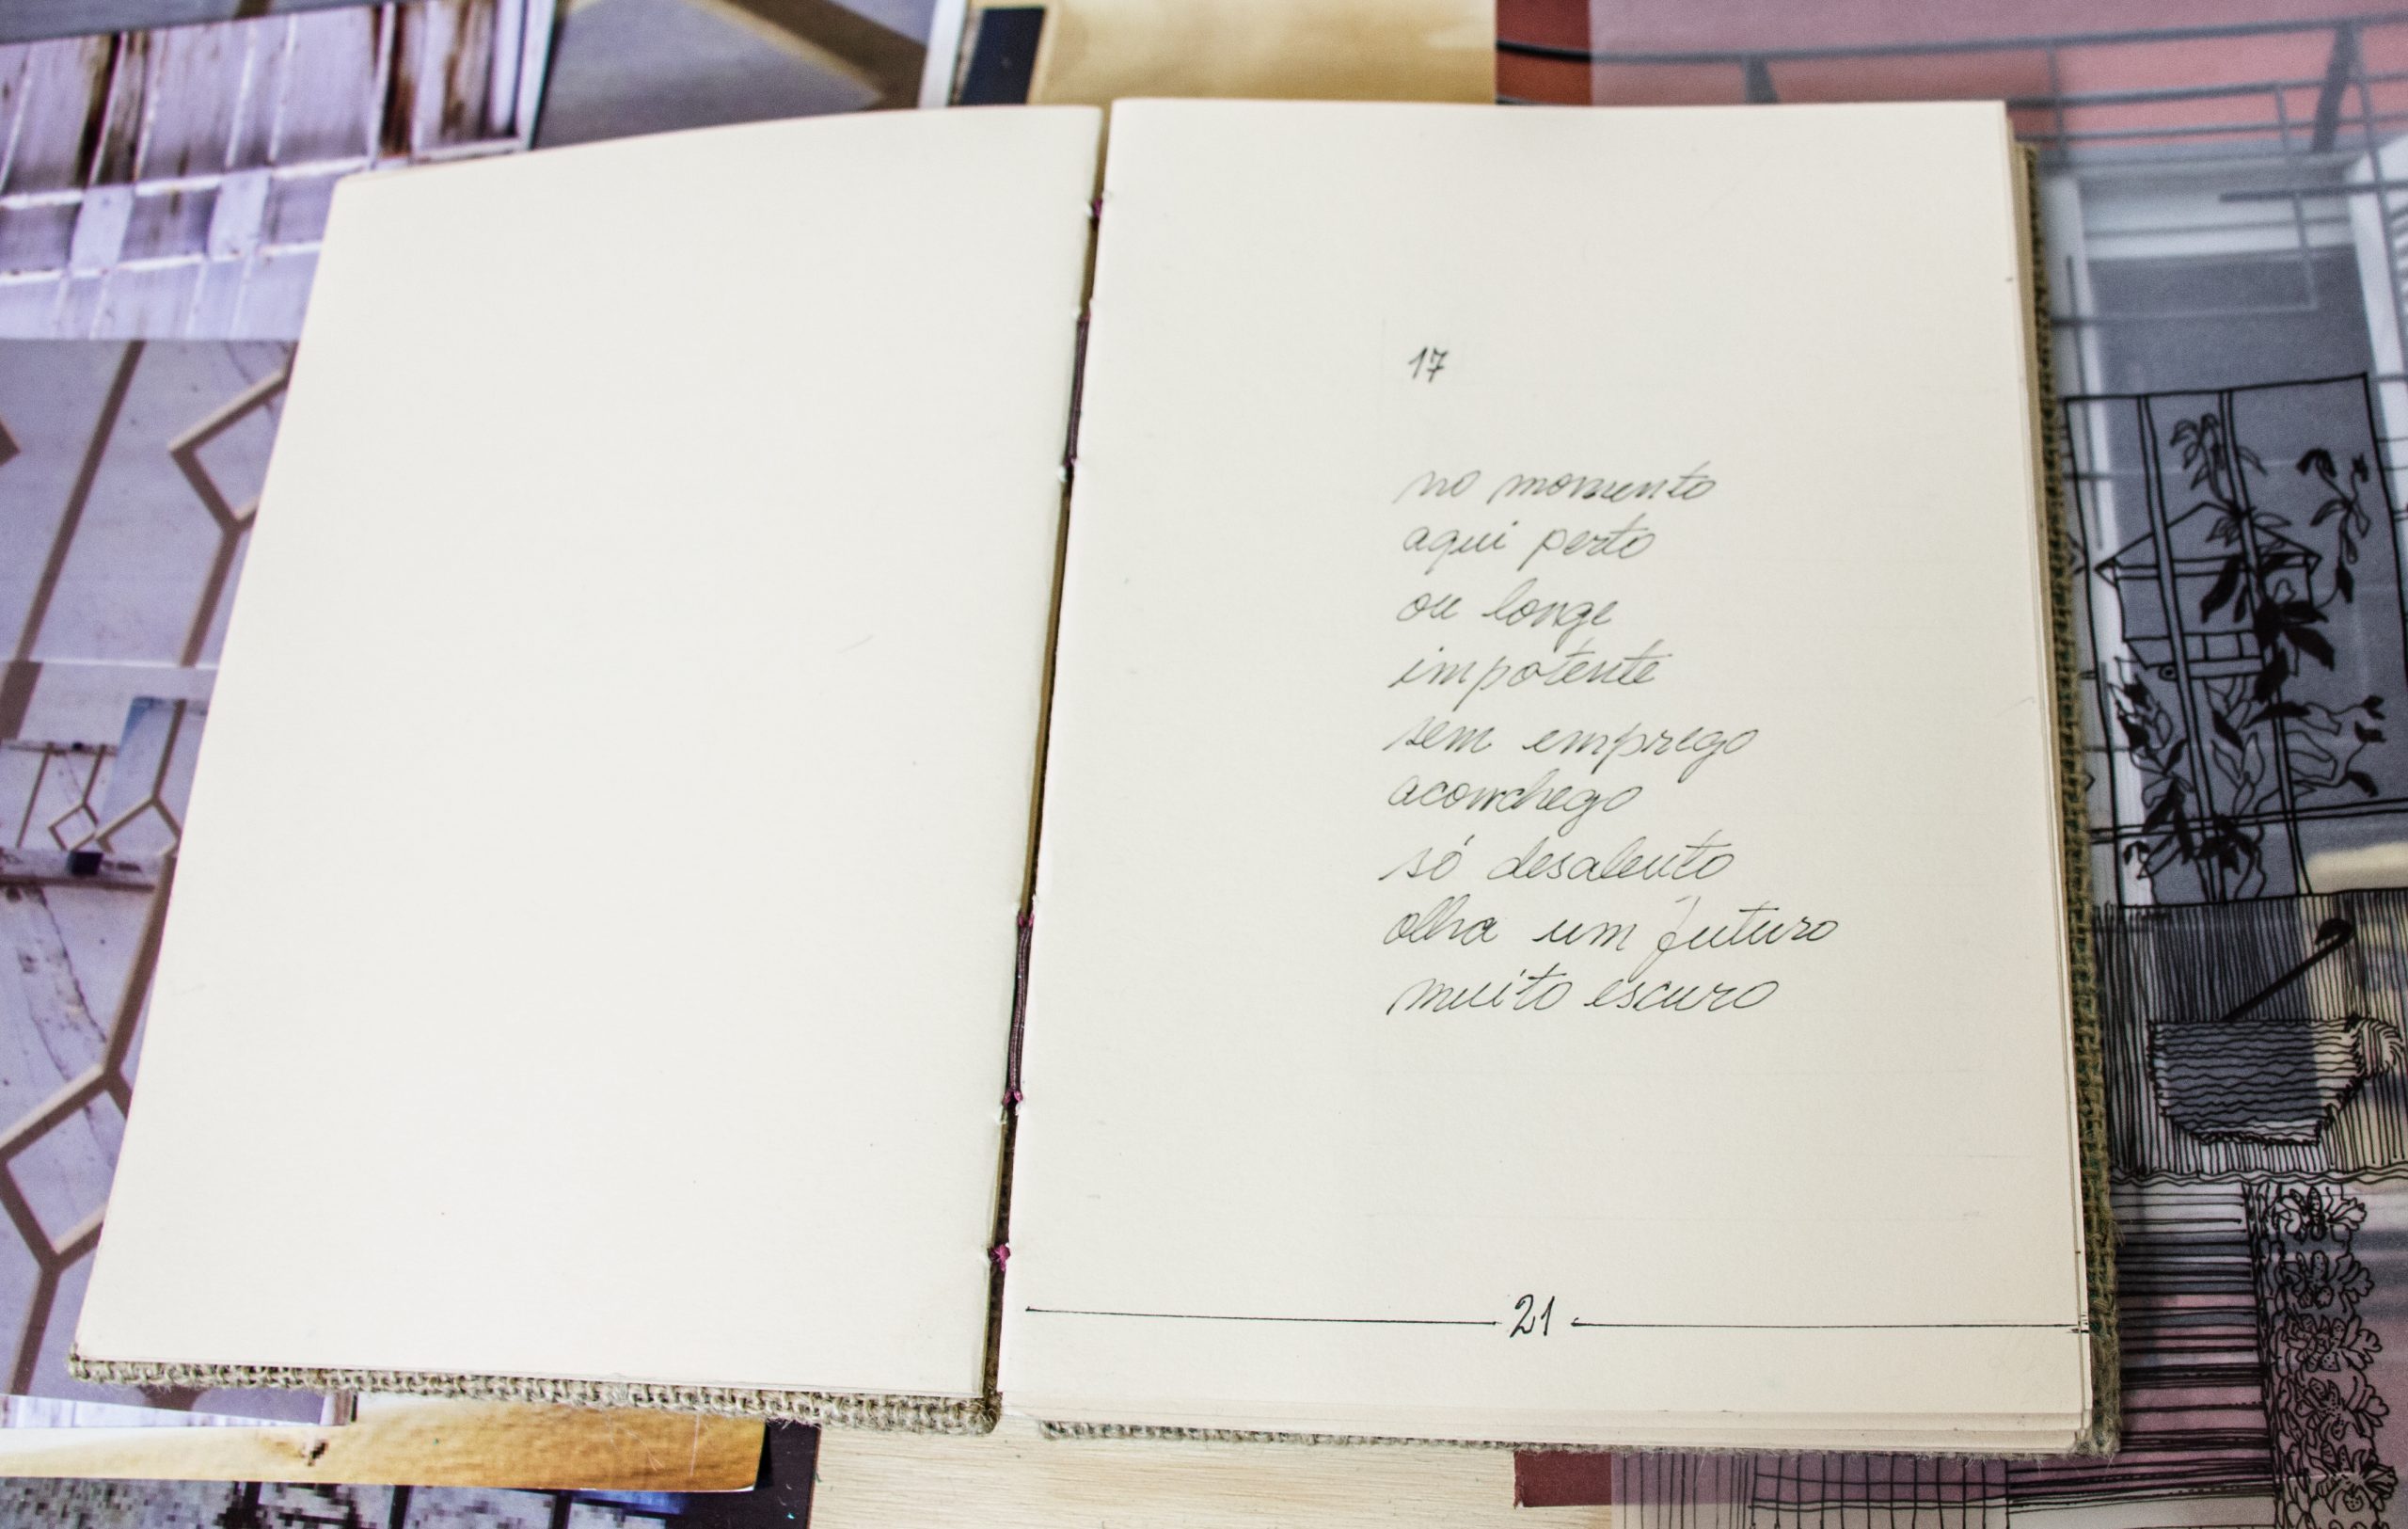 17
no momento
aqui perto
ou longe
impotente
sem emprego
aconchego
só desalento
olha um futuro
muito escuro
21